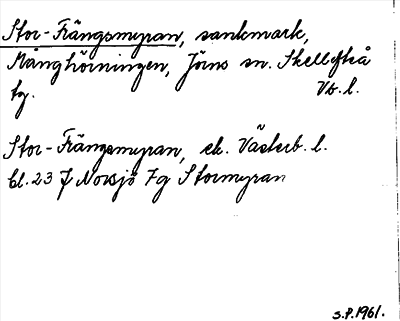 Stor-Trängsmyran, sankmark,
Månghörningen, Jörns sn. Skellefteå
tg. Vb. l.
Stor-Trängsmyran, ek. Västerb. l.
bl. 23 J Norsjö 7g Stormyran
S.P. 1961.